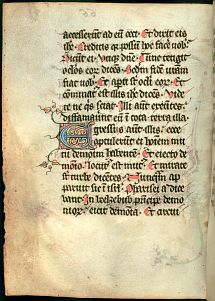 accesserunt ad eū ceci. Et dixit eis
ihc. Creditis qr possū hoc facē uob̄.
Dicūt ei. Utiqʒ dn̄e. Tūc tetigit
oclos eor̄ dicēs. Scdm fidē urām
fiat uob̄. Et apti st ocli eor̄. Et
cōminat̄ est illis ihc dicēs. Vide
te ne q̄s sciat. Illi aut̄ exeūtes
diffamauer̄t eū ī tota terra illa.
Egressis aut̄ illis. ecce
optulerūt ei hoīem mu
tū demoniū habentē. Et eiecto de
monio. locut̄ est mut̄. Et mirate
st turbe dicētes. Nunqm̄ ap
paruit sic ī isrl. Pharisei a̅ dice
bant. In principe demo
nior̄ eicit demones. Et circui